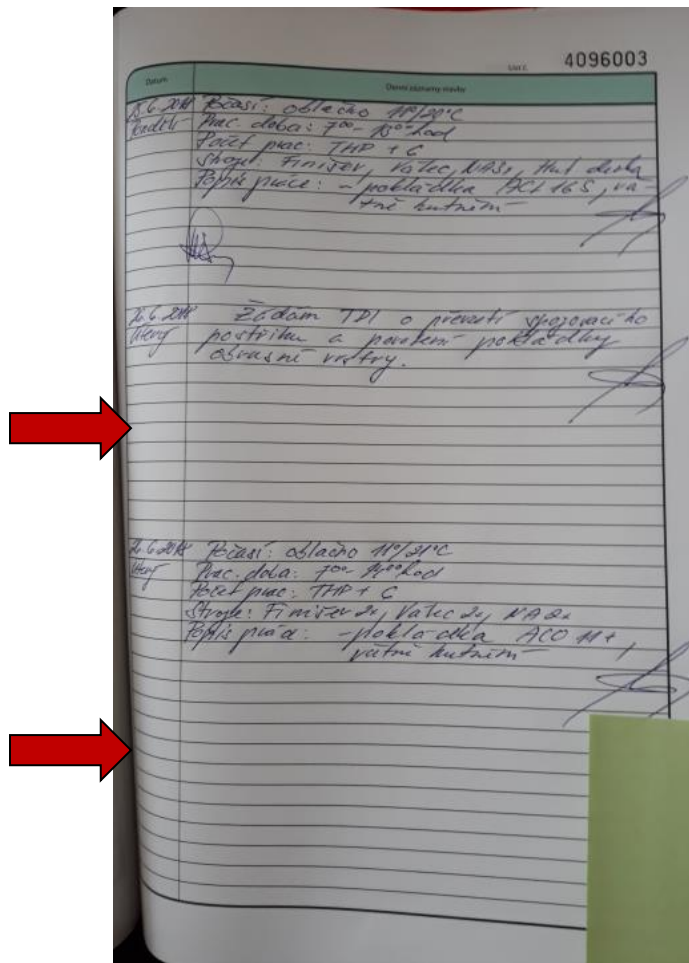 List č. 4096003
Datum
Denní záznamy stavby
25.6.2018 Počasí: oblačno 11°/20°C
Pondělí Prac. doba: 7⁰⁰- 15⁰⁰ hod
Počet prac: THP + 6
Stroje: Finišer, Válec, NA3x, Hut. deska
Popis práce: - pokládka ACL 16S, vč-
tně hutnění
26.6.2018 Žádám TDI o převzetí spojovacího
Úterý postřiku a povolení pokládky
obrusné vrstvy.
26.6.2018 Počasí: oblačno 11°/21°C
Úterý Prac. doba: 7⁰⁰- hod
Počet prac: THP + 6
Stroje: Finišer 2x, Válec 2x, NA 2x
Popis práce: - pokládka ACO 11+,
vč. hutnění